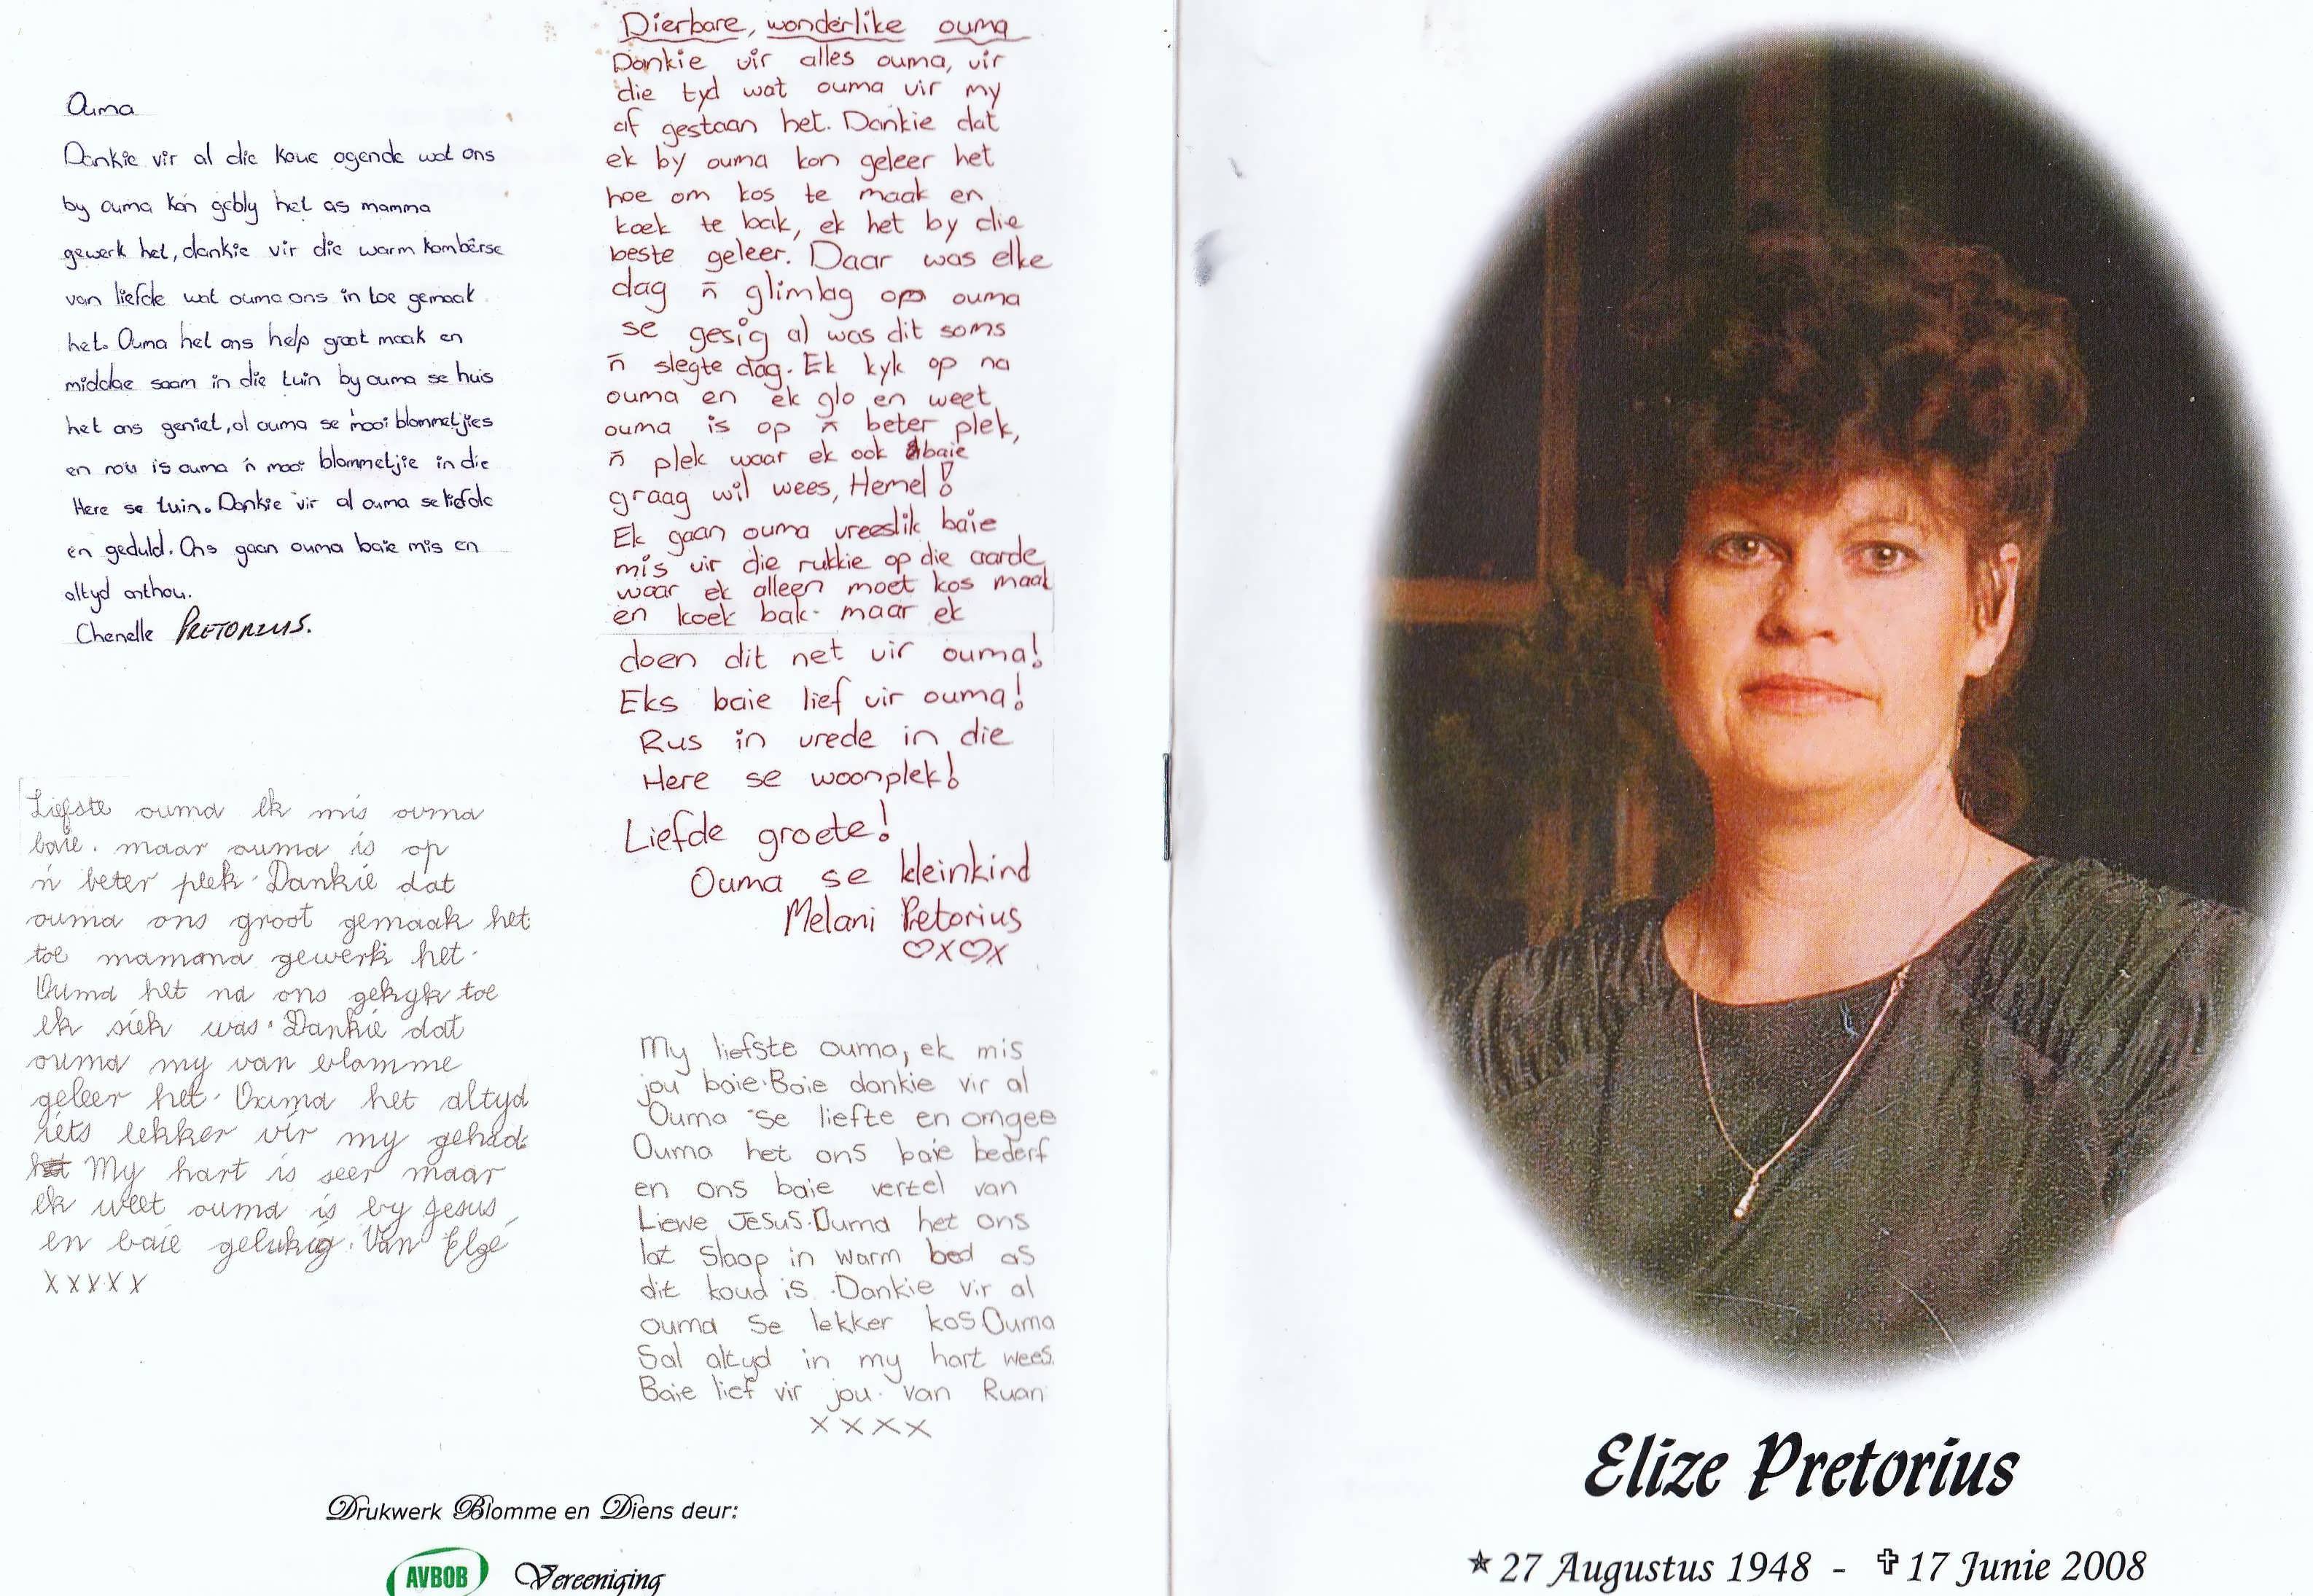 Ouma
Dankie vir al die koue ogende wat ons
by ouma kon gebly het as mamma
gewerk het, dankie vir die warm kombêrse
van liefde wat ouma ons in toe gemaak
het. Ouma het ons help groot maak en
middae saam in die tuin by ouma se huis
het ons geniet, al ouma se mooi blommetjies
en nou is ouma 'n mooi blommetjie in die
Here se tuin. Dankie vir al ouma se liefde
en geduld. Ons gaan ouma baie mis en
altyd onthou.
Chenelle PRETORIUS.
Liefste ouma Ek mis ouma
baie. maar ouma is op
'n beter plek. Dankie dat
ouma ons groot gemaak het
toe mamma gewerk het.
Ouma het na ons gekyk toe
Ek siek was. Dankie dat
ouma my van blomme
geleer het. Ouma het altyd
iets lekker vir my gehad.
My hart is seer maar
Ek weet ouma is by Jesus
en baie gelukig. Van Elzé
XXXXX
Dierbare, wonderlike ouma
Dankie vir alles ouma, vir
die tyd wat ouma vir my
af gestaan het. Dankie dat
ek by ouma kon geleer het
hoe om kos te maak en
koek te bak, ek het by die
beste geleer. Daar was elke
dag 'n glimlag op ouma
se gesig al was dit soms
'n slegte dag. Ek kyk op na
ouma en ek glo en weet
ouma is op 'n beter plek,
'n plek waar ek ook baie
graag wil wees, Hemel!
Ek gaan ouma vreeslik baie
mis vir die rukkie op die aarde
waar ek alleen moet kos maak
en koek bak. maar ek
doen dit net vir ouma!
Eks baie lief vir ouma!
Rus in vrede in die
Here se woonplek!
Liefde groete!
Ouma se kleinkind
Melani Pretorius
♡X♡X
My liefste ouma, ek mis
jou baie. Baie dankie vir al
Ouma se liefte en omgee
Ouma het ons baie bederf
en ons baie vertel van
Liewe Jesus. Ouma het ons
lat slaap in warm bed as
dit koud is. Dankie vir al
ouma se lekker kos. Ouma
Sal altyd in my hart wees.
Baie lief vir jou. van Ruan
XXXX
Drukwerk Blomme en Diens deur:
AVBOB Vereeniging
Elize Pretorius
★ 27 Augustus 1948 - ✞ 17 Junie 2008